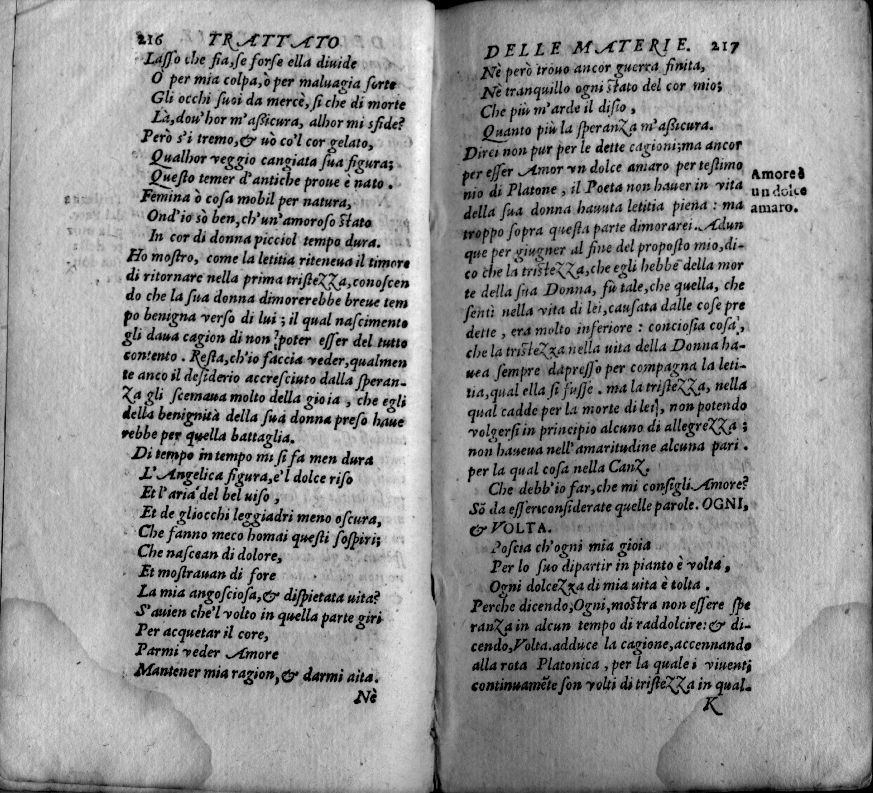 216 TRATTATO
Lasso che sia, se forse ella diuide
O per mia colpa, ò per maluagia sorte
Gli occhi suoi da mercè, si che di morte
Là, dou'hor m'assicura, alhor mi sfide?
Però s'i tremo, & uò co'l cor gelato,
Qualhor veggio cangiata sua figura;
Questo temer d'antiche proue è nato.
Femina ò cosa mobil per natura,
Ond'io sò ben, ch'un'amoroso stato
In cor di donna picciol tempo dura.
Ho mostro, come la letitia riteneua il timore
di ritornare nella prima tristezza, conoscen
do che la sua donna dimorerebbe breue tem
po benigna verso di lui; il qual nascimento
gli daua cagion di non poter esser del tutto
contento. Resta, ch'io faccia veder, qualmen
te anco il desiderio accresciuto dalla speran-
za gli scemaua molto della gioia, che egli
della benignità della sua donna preso haue
rebbe per quella battaglia.
Di tempo in tempo mi si fa men dura
L'Angelica figura, e'l dolce riso
Et l'aria del bel uiso,
Et de gliocchi leggiadri meno oscura,
Che fanno meco homai questi sospiri;
Che nascean di dolore,
Et mostrauan di fore
La mia angosciosa, & dispietata uita?
S'auien che'l volto in quella parte giri
Per acquetar il core,
Parmi veder Amore
Mantener mia ragion, & darmi aita.
Nè
DELLE MATERIE. 217
Nè però trouo ancor guerra finita,
Nè tranquillo ogni stato del cor mio;
Che più m'arde il disio,
Quanto più la speranza m'assicura.
Direi non pur per le dette cagioni; ma ancor
per esser Amor vn dolce amaro per testimo
nio di Platone, il Poeta non hauer in vita
della sua donna hauuta letitia piena: ma
troppo sopra questa parte dimorarei. Adun
que per giugner al fine del proposto mio, di-
co che la tristezza, che egli hebbe della mor
te della sua Donna, fù tale, che quella, che
sentì nella vita di lei, causata dalle cose pre
dette, era molto inferiore: conciosia cosa,
che la tristezza nella uita della Donna ha-
uea sempre dapresso per compagna la leti-
tia, qual ella si fusse. ma la tristezza, nella
qual cadde per la morte di lei, non potendo
volgersi in principio alcuno di allegrezza;
non haueua nell'amaritudine alcuna pari.
per la qual cosa nella Canz.
Che debb'io far, che mi consigli Amore?
Sō da esser considerate quelle parole. OGNI,
& VOLTA.
Poscia ch'ogni mia gioia
Per lo suo dipartir in pianto è volta,
Ogni dolcezza di mia uita è tolta.
Perche dicendo, Ogni, mostra non essere spe
ranza in alcun tempo di raddolcire: & di-
cendo, Volta. adduce la cagione, accennando
alla rota Platonica, per la quale i viuenti
continuamēte son volti di tristezza in qual-
K
Amore è
un dolce
amaro.